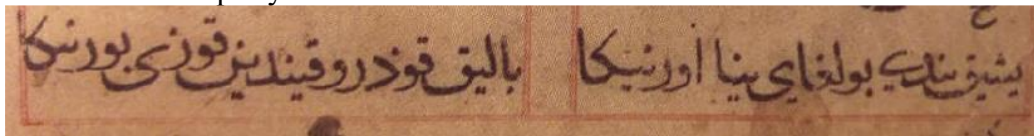 یشیق یندی بولغای ینا اورنینکا بالیق قوذروقیندین قوزی بورنینکا